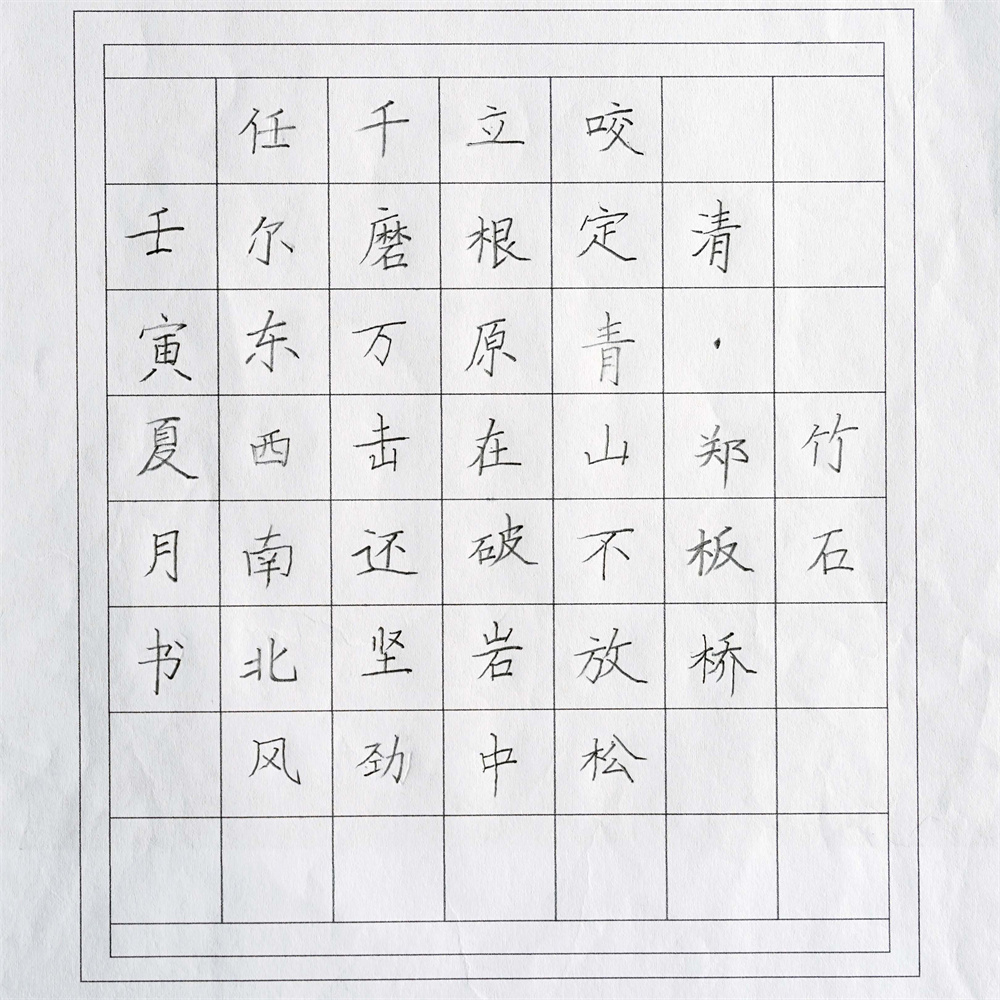 竹石
清·郑板桥
咬定青山不放松
立根原在破岩中
千磨万击还坚劲
任尔东西南北风
壬寅夏月书